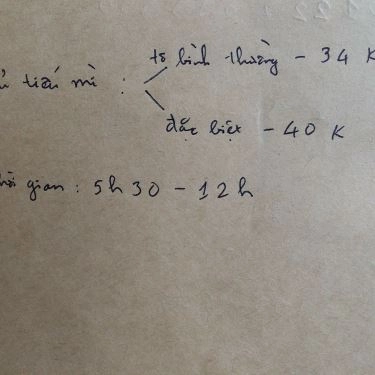 tô bình thường - 34 K
tiếu mì :
đặc biệt - 40 K
gian : 5h30 - 12h